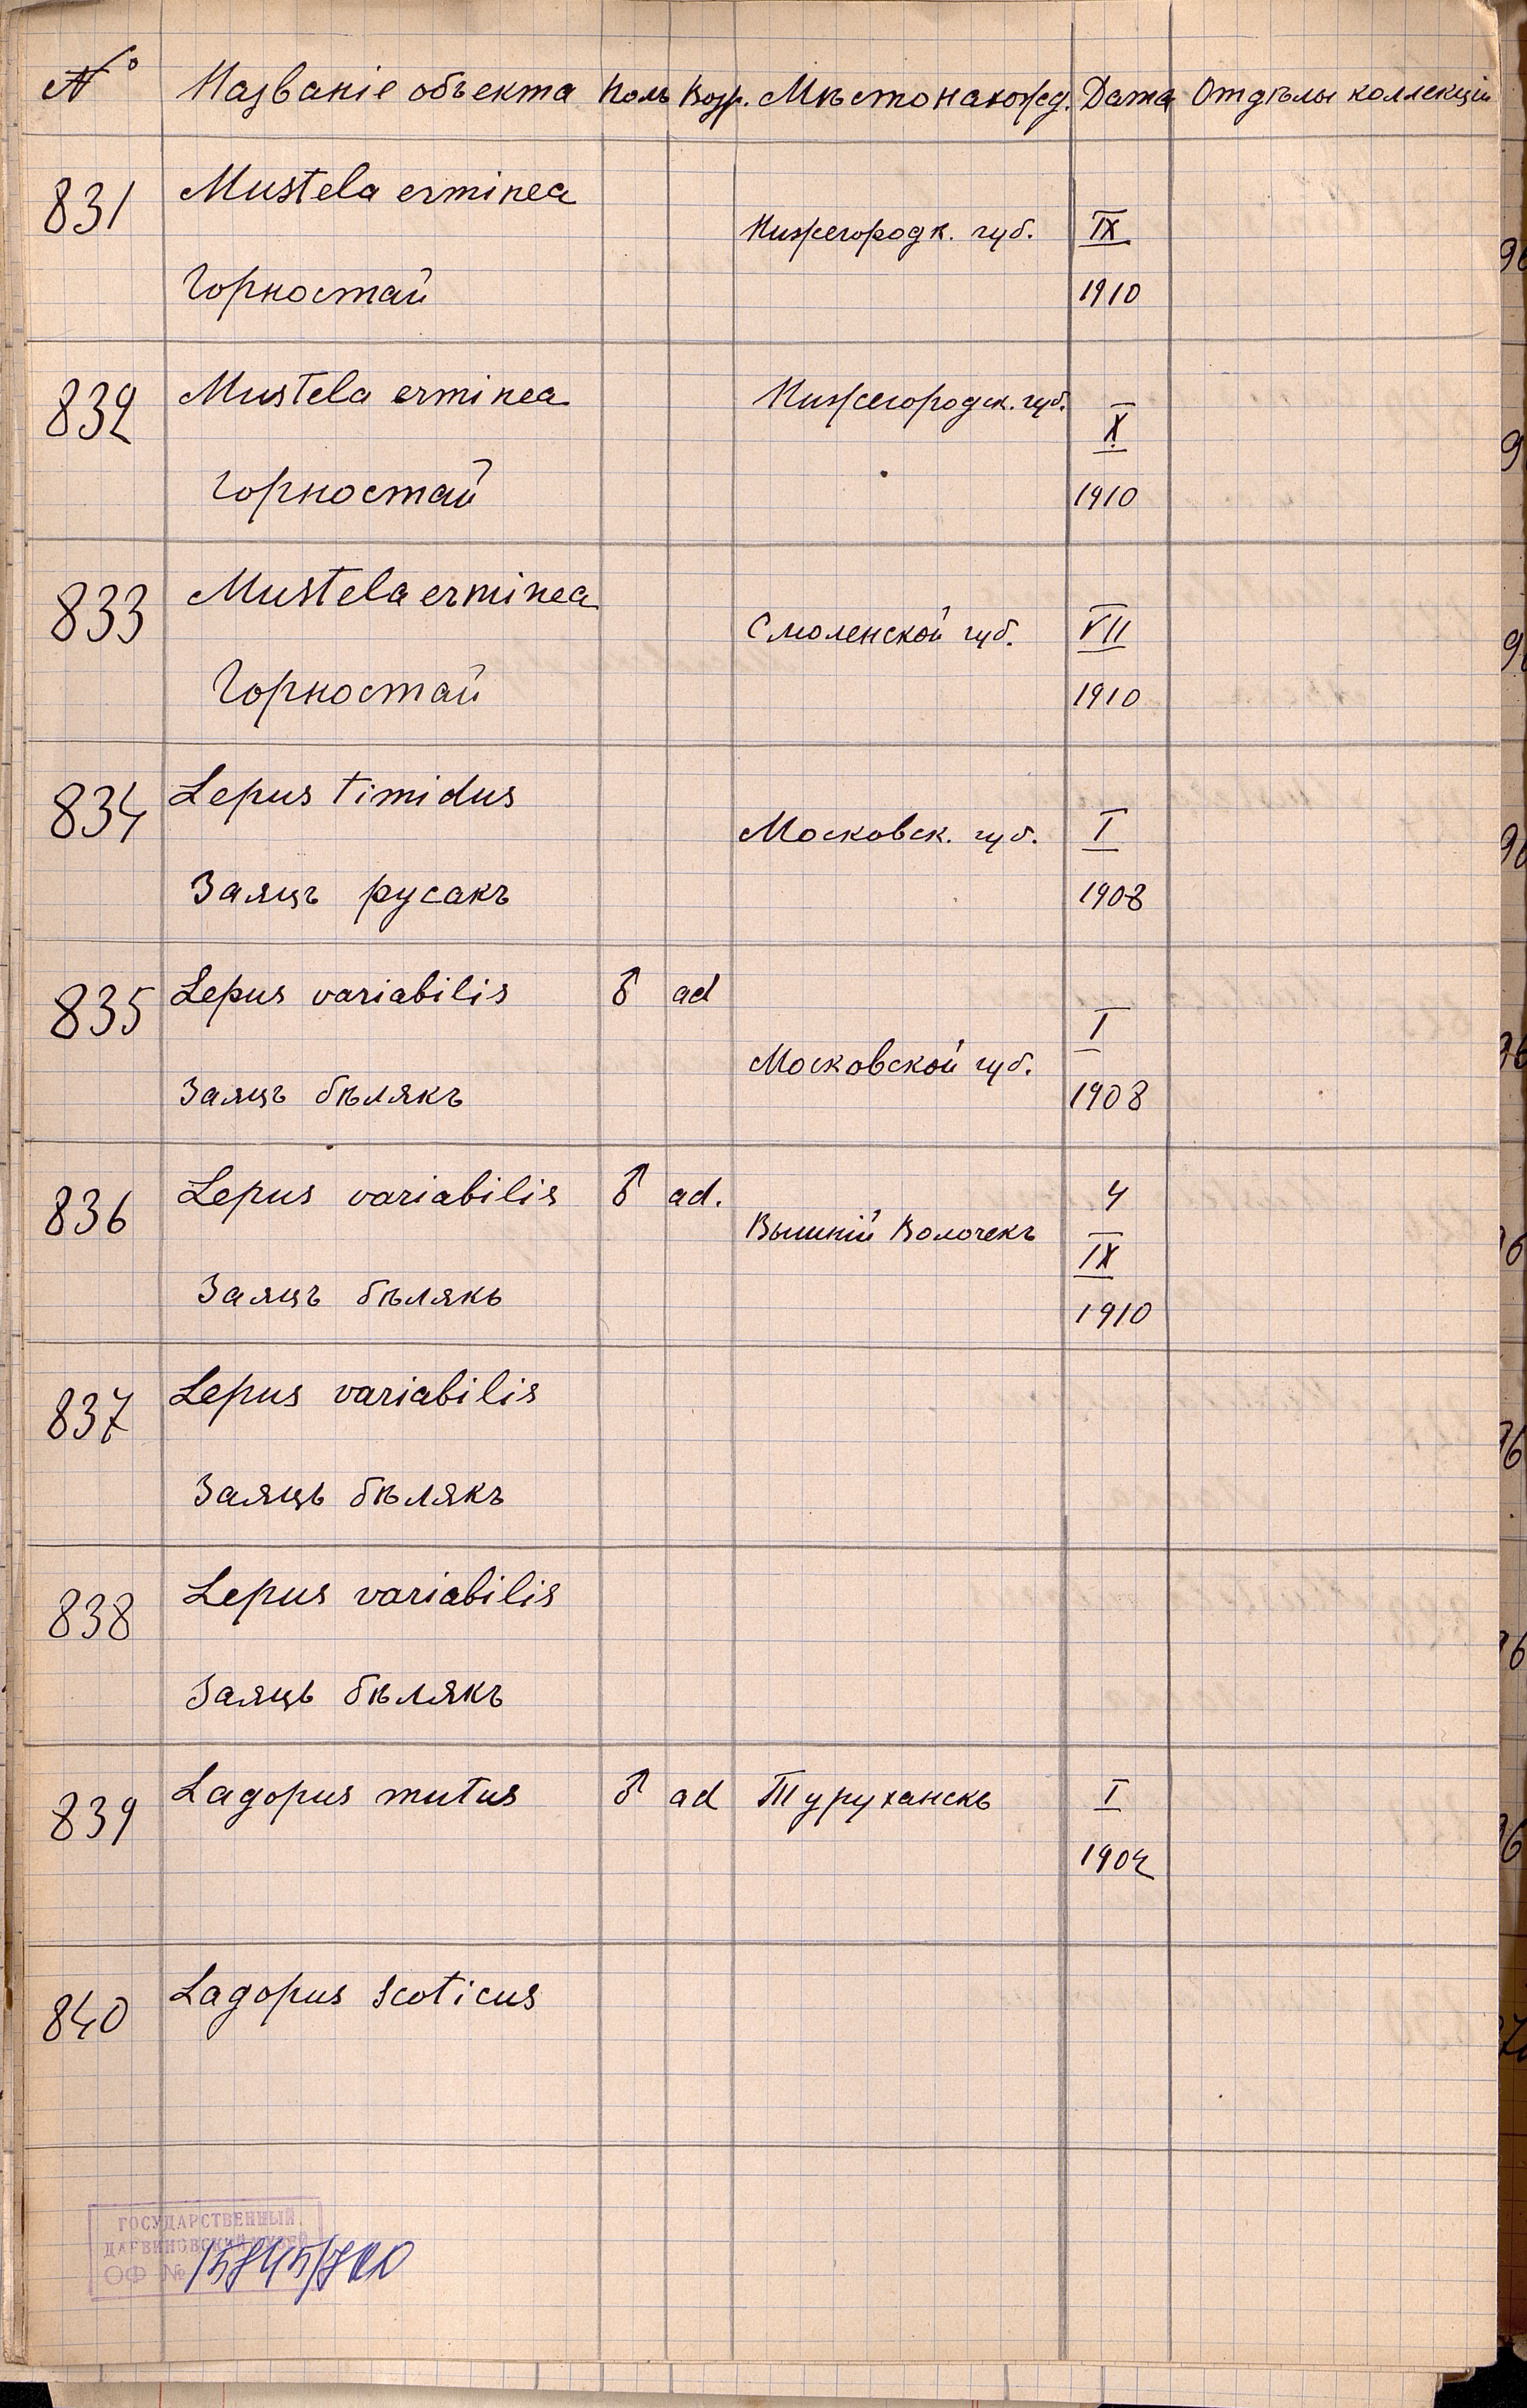 № Названіе объекта Полъ Возр. Мѣстонахожд. Дата Отдѣлы коллекціи
831 Mustela erminea
Нижегородк. губ. IX
Горностай 1910
832 Mustela erminea Нижегородск. губ.
X
Горностай 1910
833 Mustela erminea
Смоленской губ. VII
Горностай 1910
834 Lepus timidus
Московск. губ. I
Заяцъ русакъ 1908
835 Lepus variabilis ♂ ad
I
Московской губ.
Заяцъ бѣлякъ 1908
836 Lepus variabilis ♂ ad. 4
Вышній Волочекъ IX
Заяцъ бѣлякъ 1910
837 Lepus variabilis
Заяцъ бѣлякъ
838 Lepus variabilis
Заяцъ бѣлякъ
839 Lagopus mutus ♂ ad Туруханскъ I
1904
840 Lagopus scoticus
ГОСУДАРСТВЕННЫЙ
ДАРВИНОВСКИЙ МУЗЕЙ
ОФ №